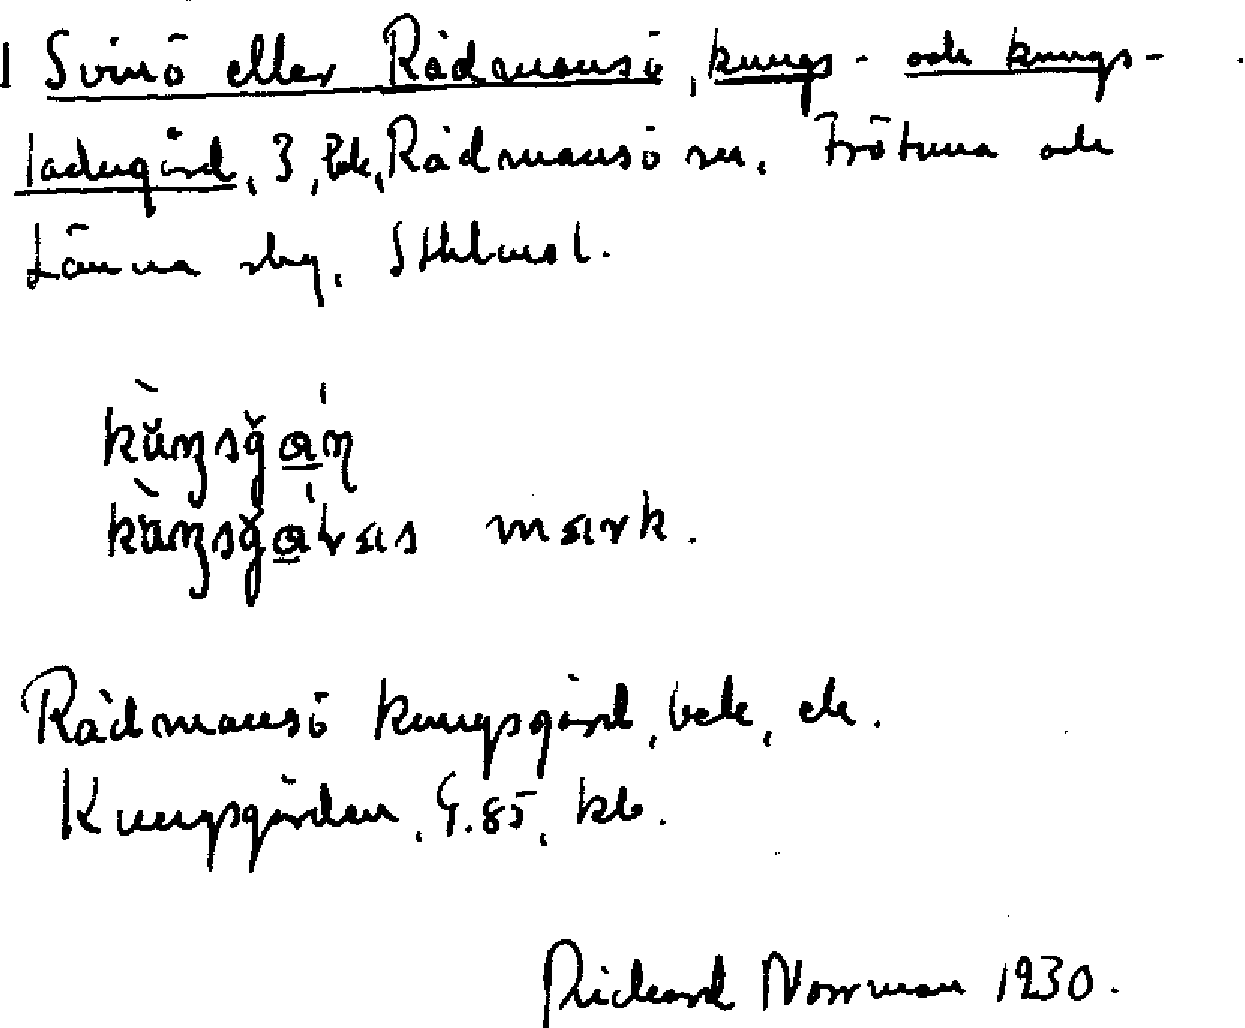 1 Svinö eller Rådmansö, kungs- och kungs-
ladugård, 3, bek, Rådmansö sn. Frötuna och
Länna sbg. Sthlms l.
kùŋsgɑ́ɳ
kùŋsgɑ́ɽas mark.
Rådmansö kungsgård, bek, ek.
Kungsgården, G.85, kb.
Rickard Norrman 1930.